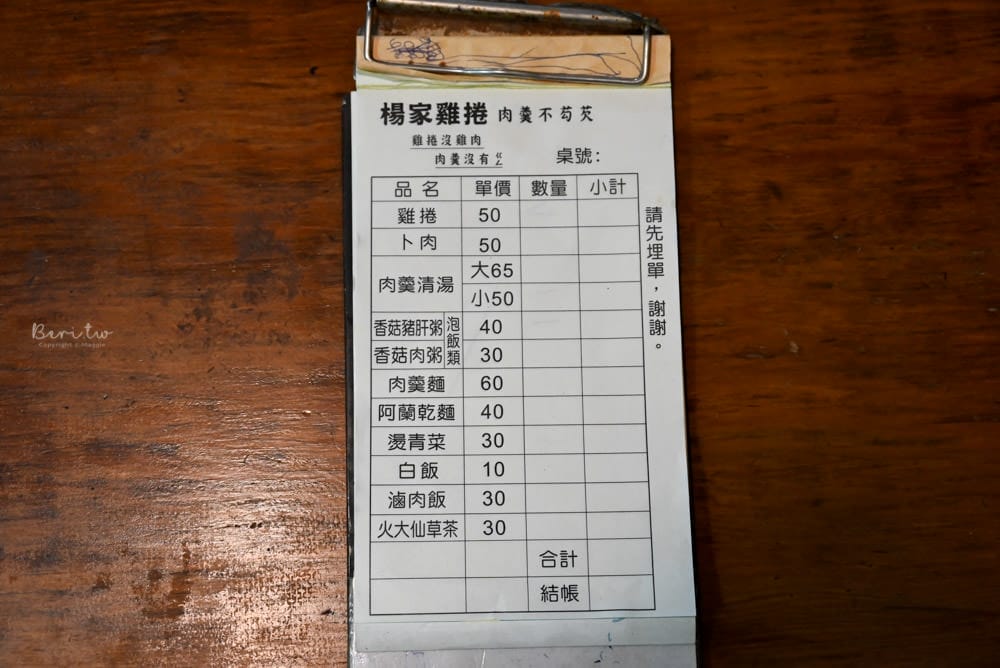 楊家雞捲 肉羹不芶芡
雞捲沒雞肉
肉羹沒有ㄍㄥ
桌號：
品名 單價 數量 小計
雞捲 50
卜肉 50
肉羹清湯 大65
小50
香菇豬肝粥 泡飯類 40
香菇肉粥 30
肉羹麵 60
阿蘭乾麵 40
燙青菜 30
白飯 10
滷肉飯 30
火大仙草茶 30
合計
結帳
請先埋單，謝謝。
Beri.tw
Copyright © Maggie